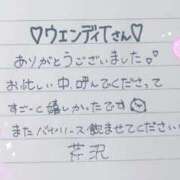 ♡ウエンディTさん♡
ありがとうございました。
お忙しい中、呼んでくださって
すごーく嬉しかったです
またバイバリース飲ませてください
芹沢